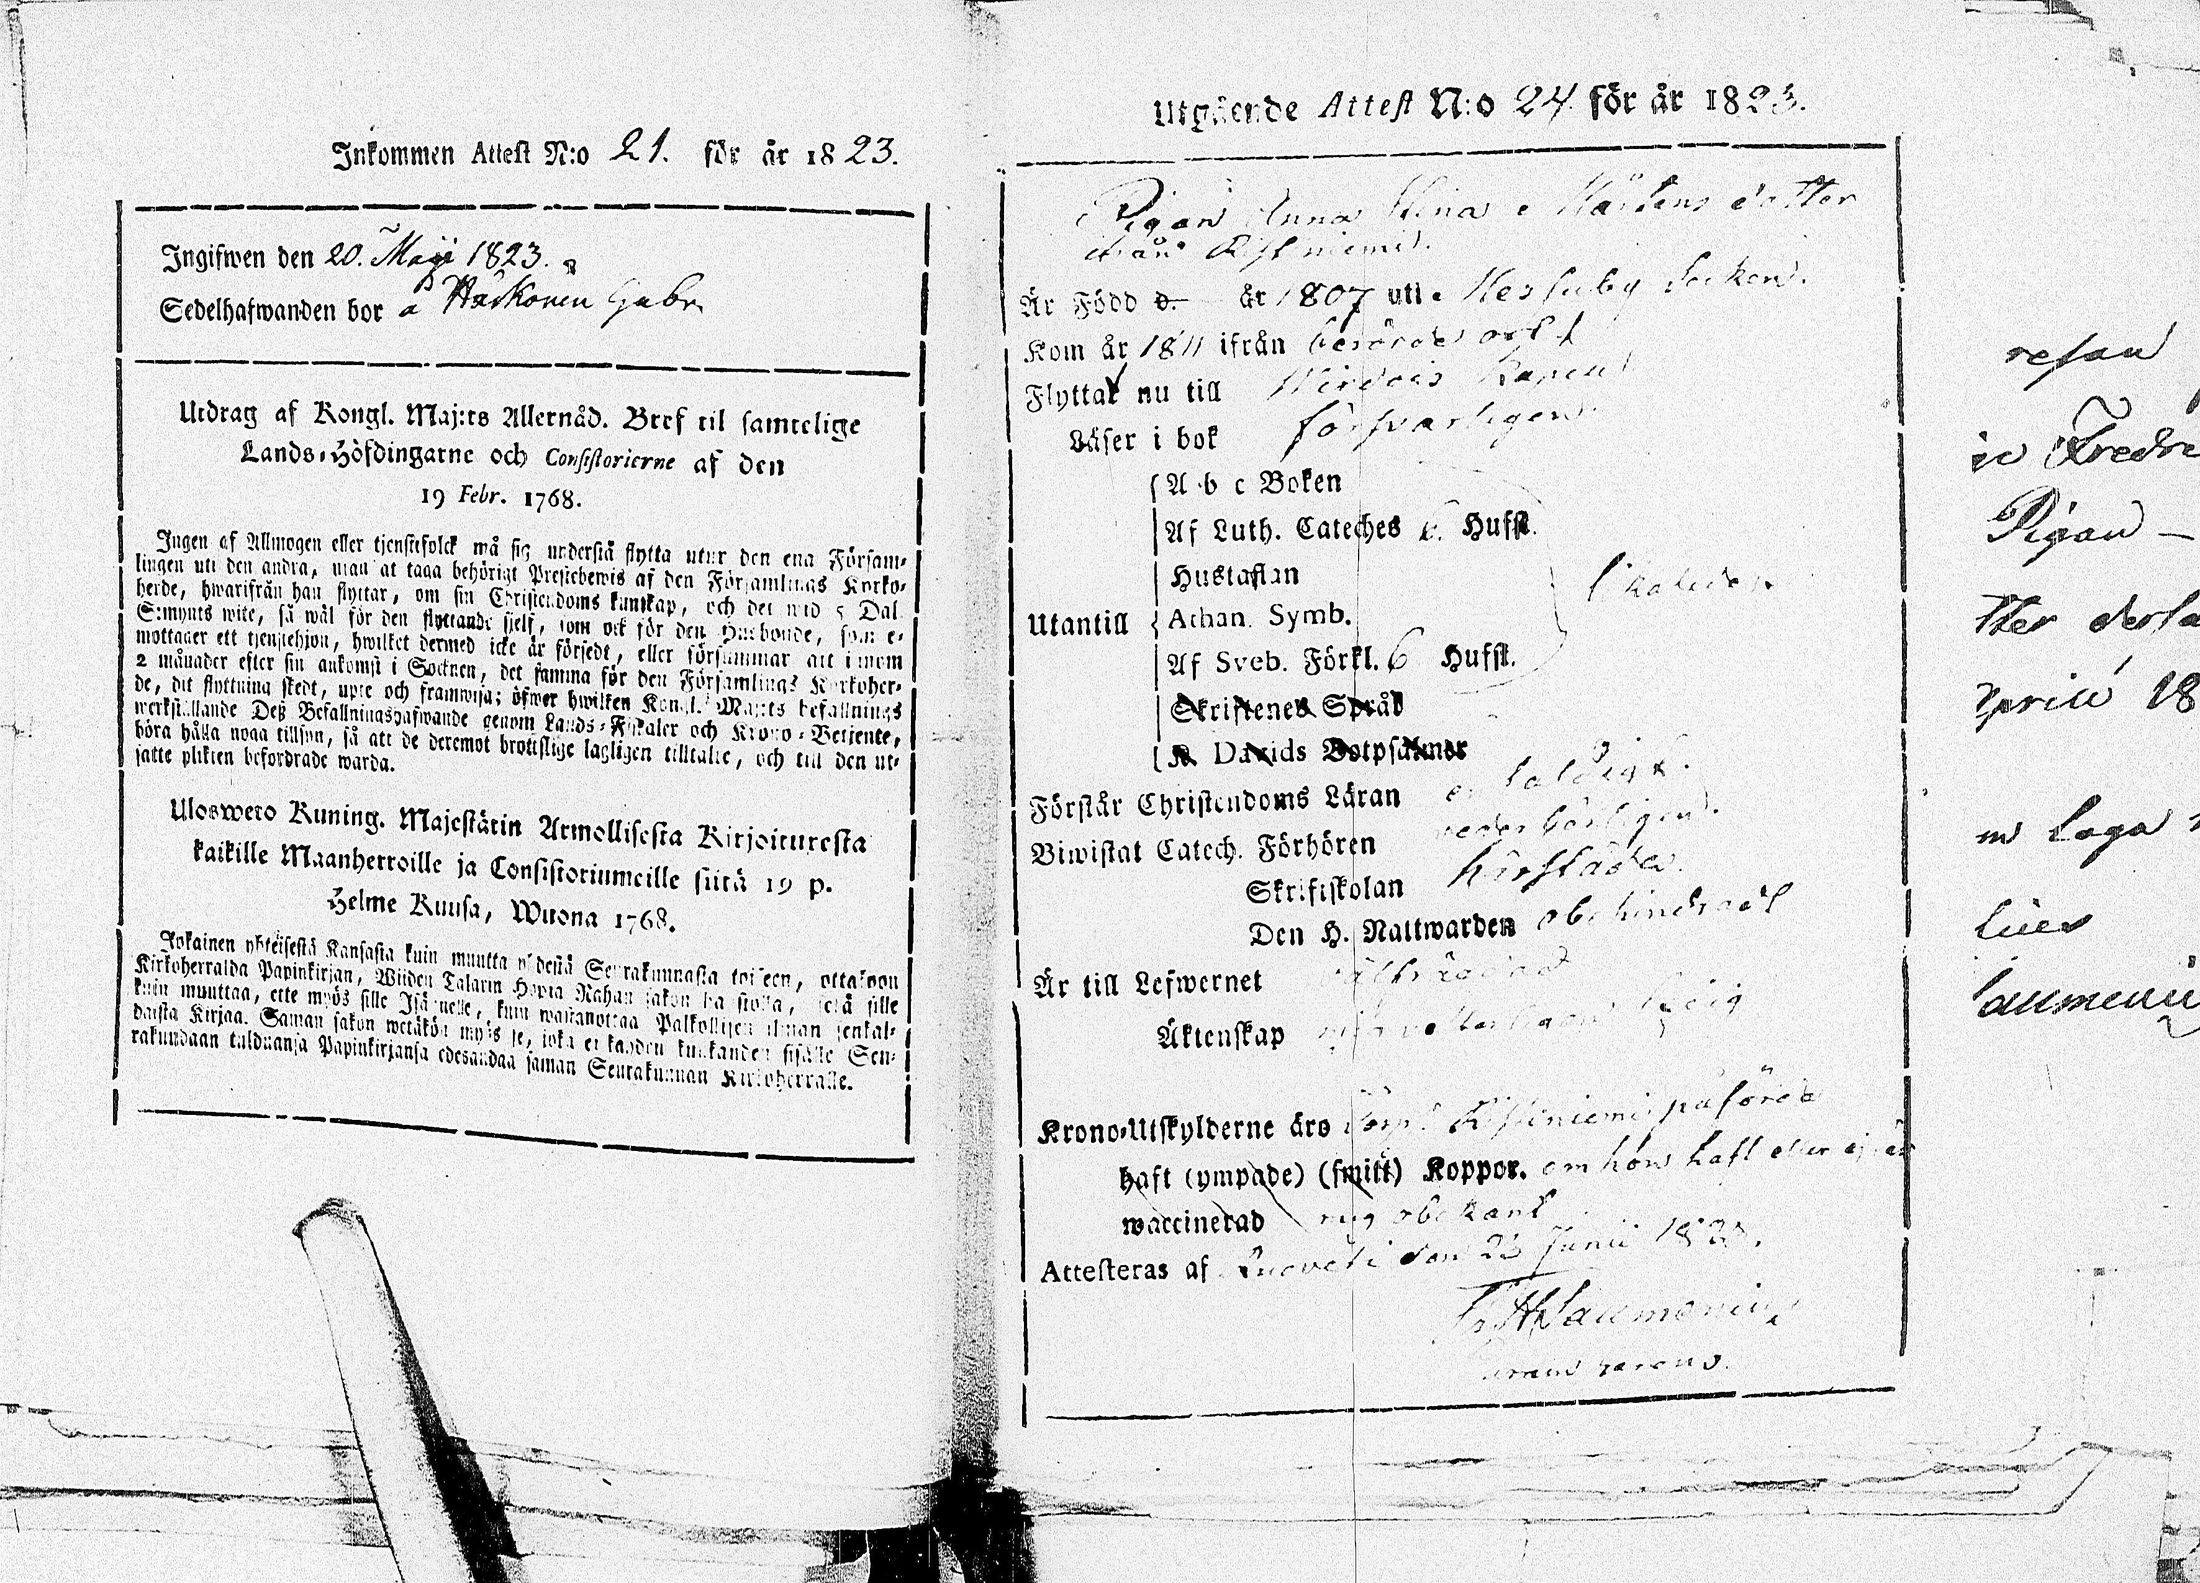 Inkommen Attest N:o 21. för år 1823.
Ingifwen den 20. Maji 1823.
Sedelhafwanden bor å Häskonen Gabr.
Utdrag af Kongl. Maj:ts Allernåd. Bref til samtelige
Lands-Höfdingarne och Consistorierne af den
19 Febr. 1768.
Ingen af Allmogen eller tjenstefolck må sig understå flytta utur den ena Försam-
lingen uti den andra, utan at taga behörigt Prestebewis af den Församlings Kyrko-
herde, hwarifrån han flyttar, om sin Christendoms kunskap, och det wid 5 Dal.
S:mynts wite, så wäl för den flyttande sjelf, som ock för den Husbonde, som e-
mottager ett tjenstehjon, hwilket dermed icke är försedt, eller försummar att innom
2 månader efter sin ankomst i Socknen, det samma för den Församlings Kyrkoher-
de, dit flyttning skedt, upte och framwisa; öfwer hwilken Kongl. Maj:ts befallnings
werkställande Deß Befallningshafwande genom Lands-Fiskaler och Krono-Betjente,
böra hålla noga tillsyn, så att de deremot brottslige lagligen tilltalte, och till den ut-
satte plikten befordrade warda.
Ulosweto Kuning. Majestätin Armollisesta Kirjoituresta
kaikille Maanherroille ja Consistoriumeille siitä 19 p.
Helme Kuusa, Wuona 1768.
Jokainen yhteisestä Kansasta kuin muutta yhdestä Seurakunnasta toiseen, ottakoon
Kirkoherralda Papinkirjan, Wiiden Talarin Hopia Rahan sakon
kuin muuttaa, ette myös sille Isännelle, kuin wastanottaa Palkollisen ilman senkal-
daista Kirjaa. Saman sakon wetäkön myös se, joka ei kahden kuukauden sisälle Seu-
rakundaan tulduansa Papinkirjansa edesandaa saman Seurakunnan Kirkoherralle.
Utgående Attest N:o 24. för år 1823.
Pigan Anna Stina Mårtens dotter
från Ristiniemi.
Är Född d. år 1807 uti Messuby Socken.
Kom år 1811 ifrån berörde ort
Flyttar nu till Wirdois
Läser i bok försvarligen
Utantill
A b c Boken
Af Luth. Cateches 6. Hufst.
Hustaflan
Athan. Symb.
Af Sveb. Förkl. 6 Hufst.
Skriftenes Språk
K. Davids Botpsalmer
Förstår Christendoms Läran
Biwistat Catech. Förhören vederbörligen.
Skriftskolan härstädes
Den H. Nattwarden obehindrad
Är till Lefwernet välfrägdad
Äktenskap ledig
Krono-Utskylderne äro Ristiniemi påförde
haft (ympade) (smitt) Koppor. om hon haft eller ej är
waccinerad mig obekant
Attesteras af Ruovesi den 23 Junii 1823.
resan
Fredr
Pigan —
tter
Aprill 18
laga